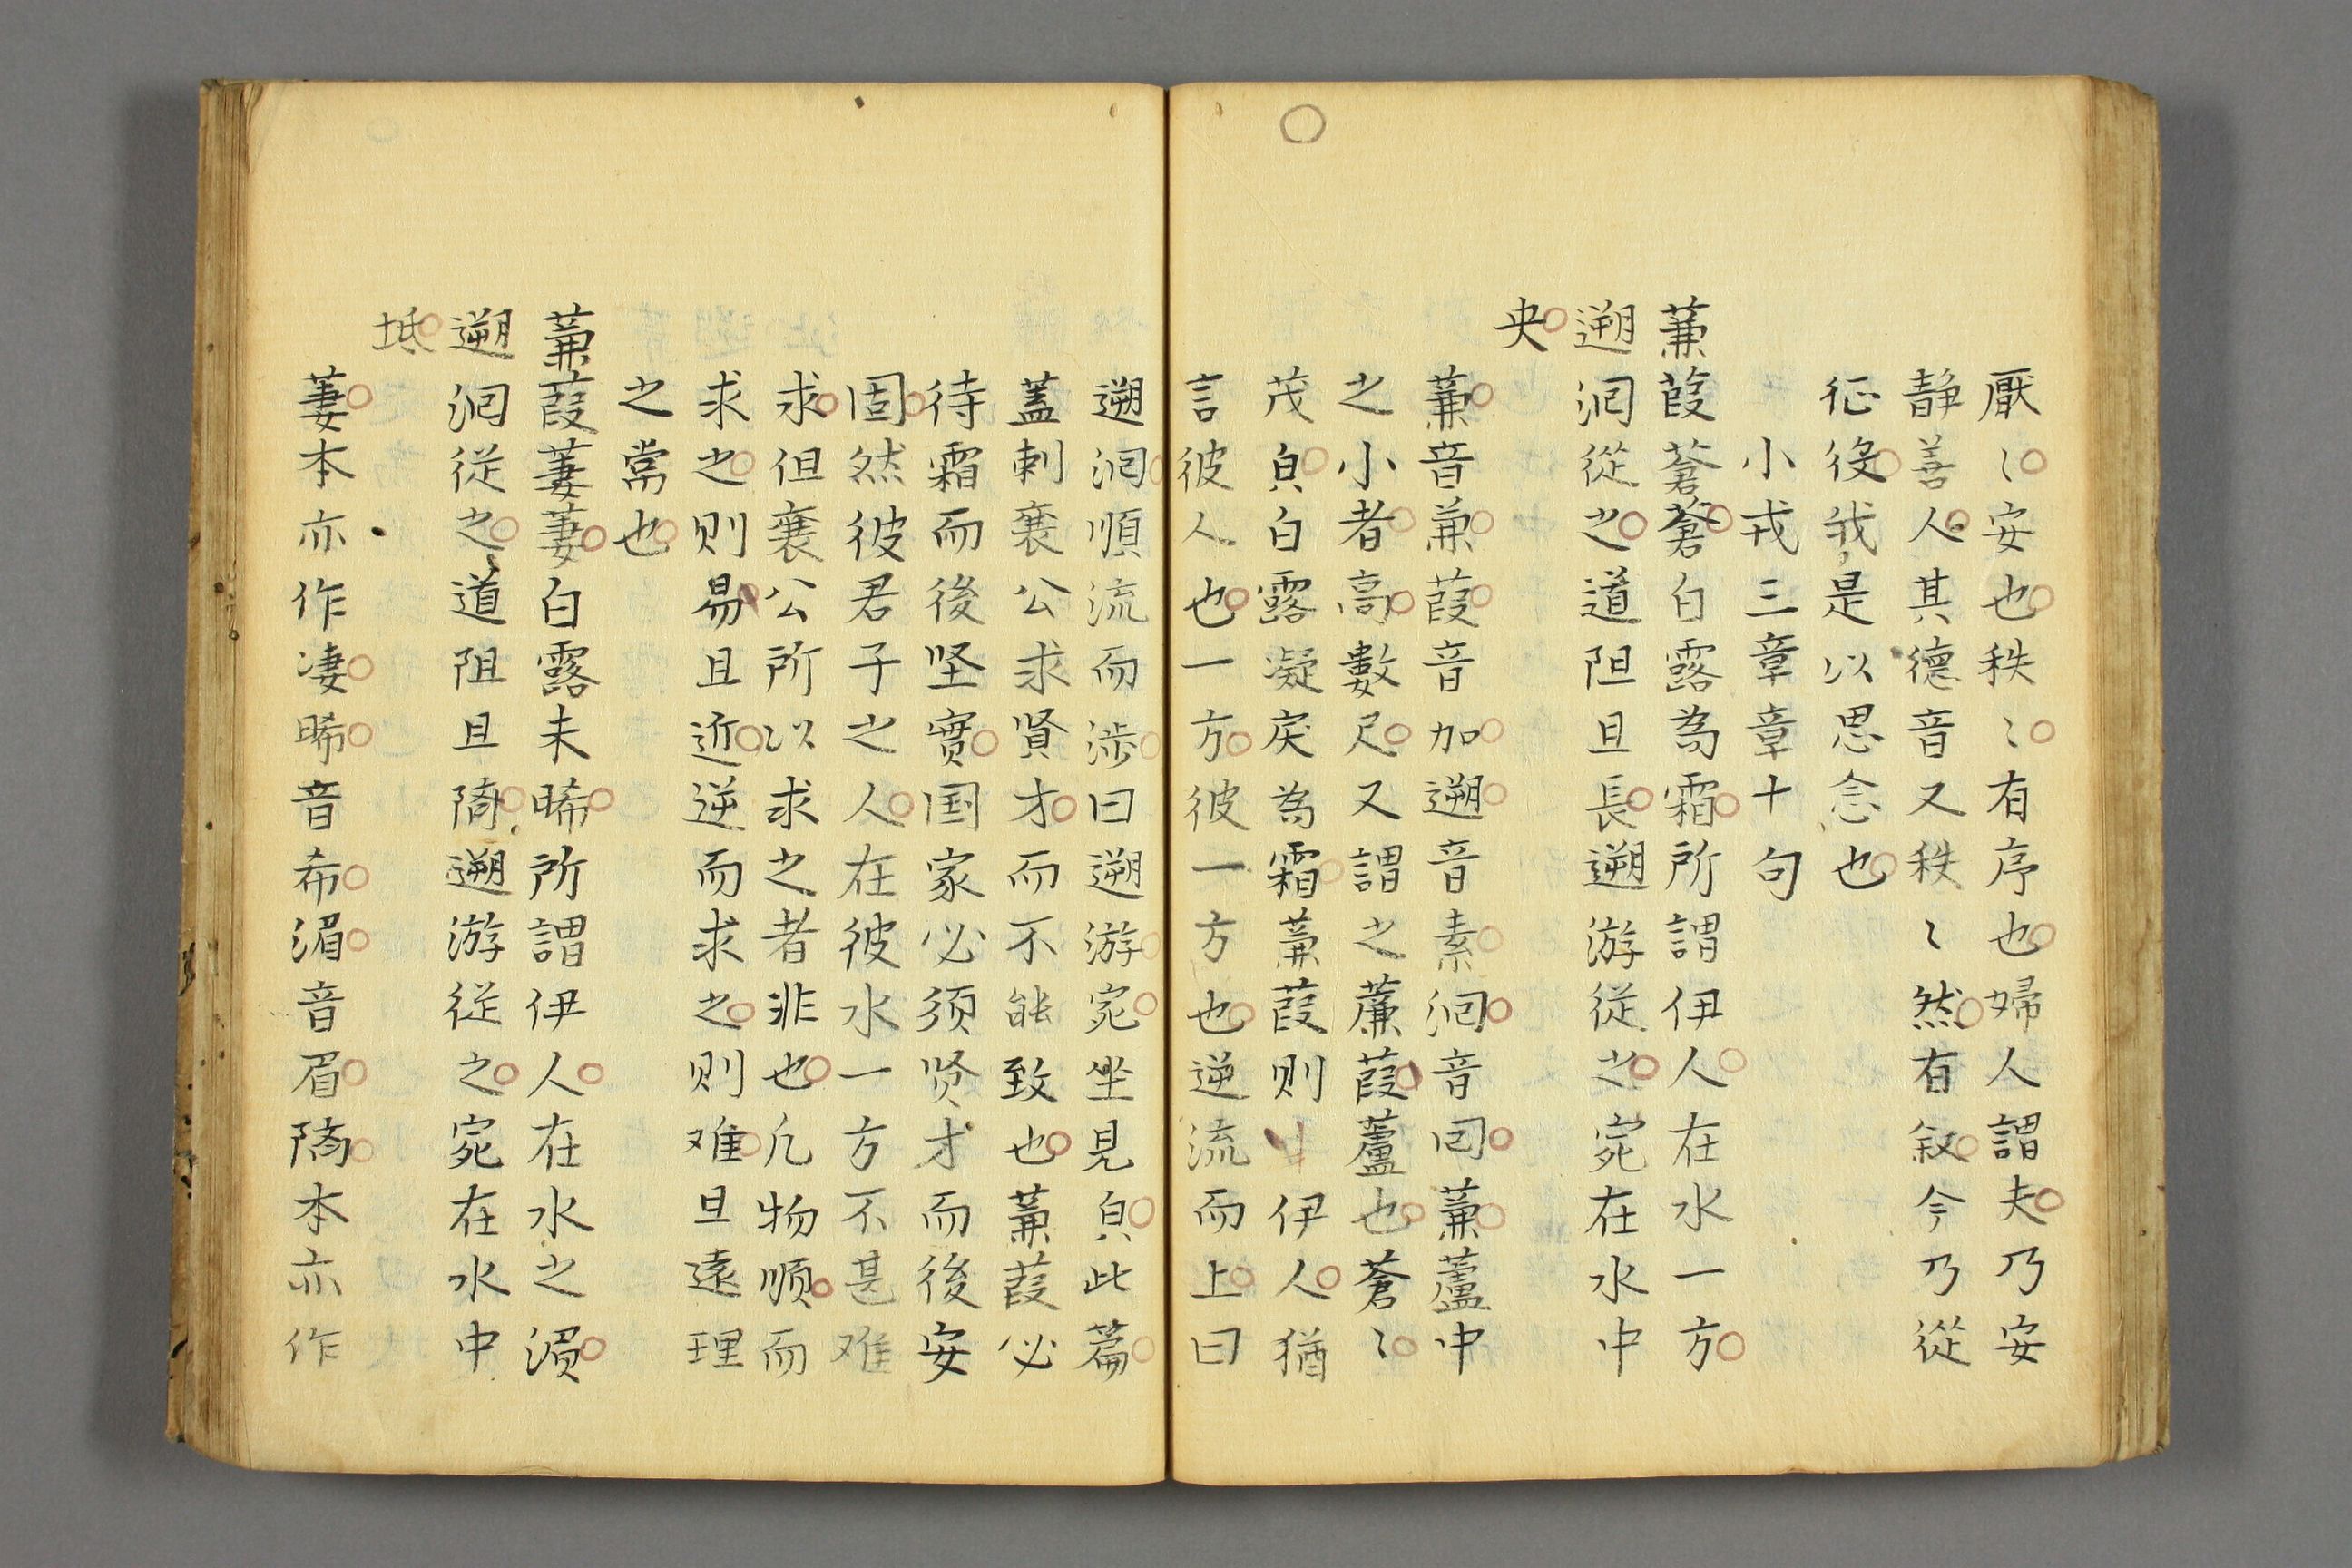 厭〻安也秩〻有序也婦人謂夫乃安
静善人其德音又秩〻然有叙今乃從
征役我是以思念也
小戎三章章十句
蒹葭蒼蒼白露為霜所謂伊人在水一方
遡洄從之道阻且長遡游從之宛在水中
央
蒹音兼葭音加遡音素洄音回蒹蘆中
之小者高數尺又謂之薕葭蘆也蒼〻
茂皃白露凝戾為霜蒹葭则伊人猶
言彼人也一方彼一方也逆流而上曰
遡洄順流而涉曰遡游宛坐見皃此篇
蓋刺襄公求賢才而不能致也蒹葭必
待霜而後坚實国家必须贤才而後安
固然彼君子之人在彼水一方不甚难
求但襄公所以求之者非也凢物顺而
求之则易且近逆而求之则难且遠理
之常也
蒹葭萋萋白露未晞所謂伊人在水之湄
遡洄從之道阻且隮遡游従之宛在水中
坻
萋本亦作凄晞音希湄音眉隮本亦作